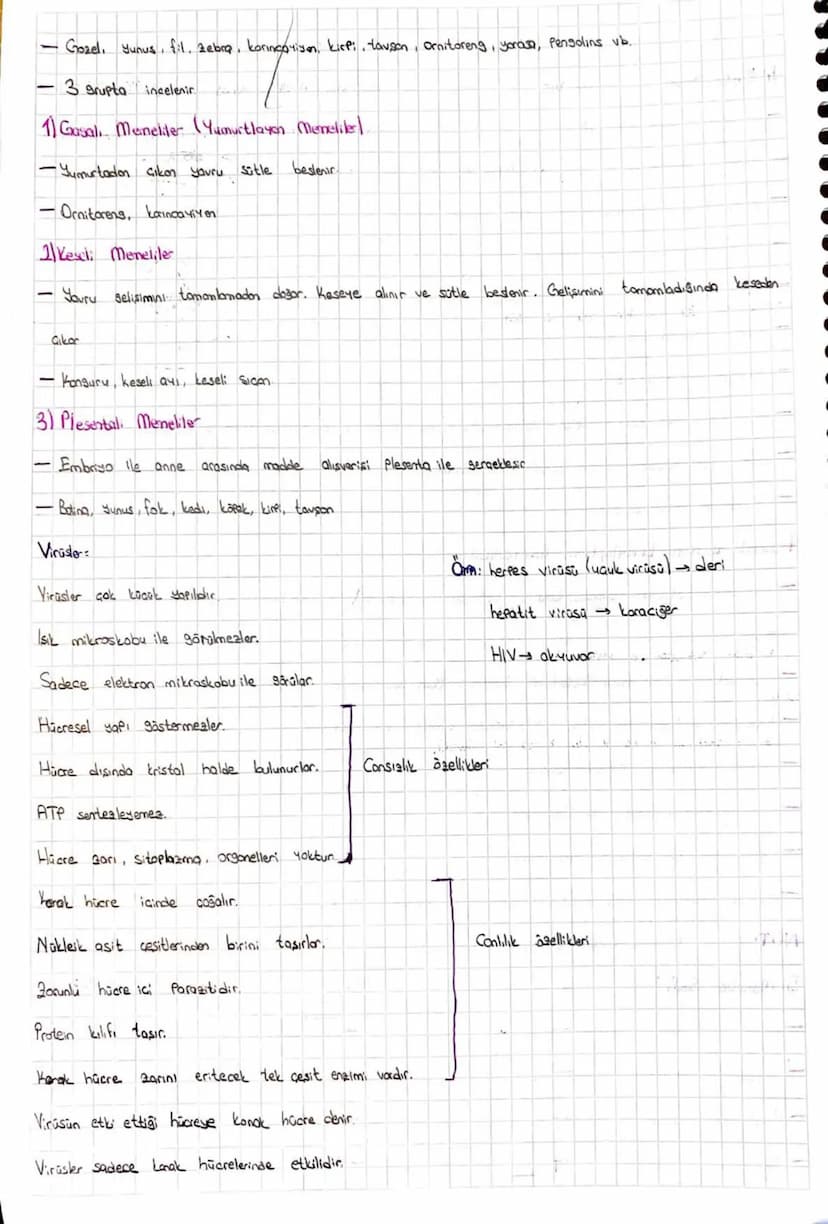 — Gazel, yunus, fil, zebra, karıncayiyen, kirpi, tavşan, Ornitoreng, yarasa, Pengolins vb.
— 3 grupta incelenir
1) Gagalı Memeliler (Yumurtlayan Memeliler)
— Yumurtadan çıkan yavru sütle beslenir.
— Ornitoreng, karıncayiyen
2) Keseli Memeliler
— Yavru gelişimini tamamlamadan doğar. Keseye alınır ve sütle beslenir. Gelişimini tamamladığında keseden
çıkar
— Kanguru, keseli ayı, keseli sıçan
3) Plesentalı Memeliler
— Embriyo ile anne arasında madde alışverişi Plesenta ile gerçekleşir
— Balina, yunus, fok, kedi, köpek, kirpi, tavşan
Virüsler:
Virüsler çok küçük yapılıdır
Işık mikroskobu ile görülmezler.
Sadece elektron mikroskobu ile görülür.
Örn: herpes virüsü (uçuk virüsü) → deri
hepatit virüsü → karaciğer
HIV → akyuvar
Hücresel yapı göstermezler.
Hücre dışında kristal halde bulunurlar.
Cansızlık özellikleri
ATP sentezleyemez.
Hücre zarı, sitoplazma, organelleri yoktur.
Konak hücre içinde çoğalır.
Nükleik asit çeşitlerinden birini taşırlar.
Canlılık özellikleri
Zorunlu hücre içi Parazitidir.
Protein kılıfı taşır.
Konak hücre zarını eritecek tek çeşit enzimi vardır.
Virüsün etki ettiği hücreye konak hücre denir.
Virüsler sadece konak hücrelerinde etkilidir.